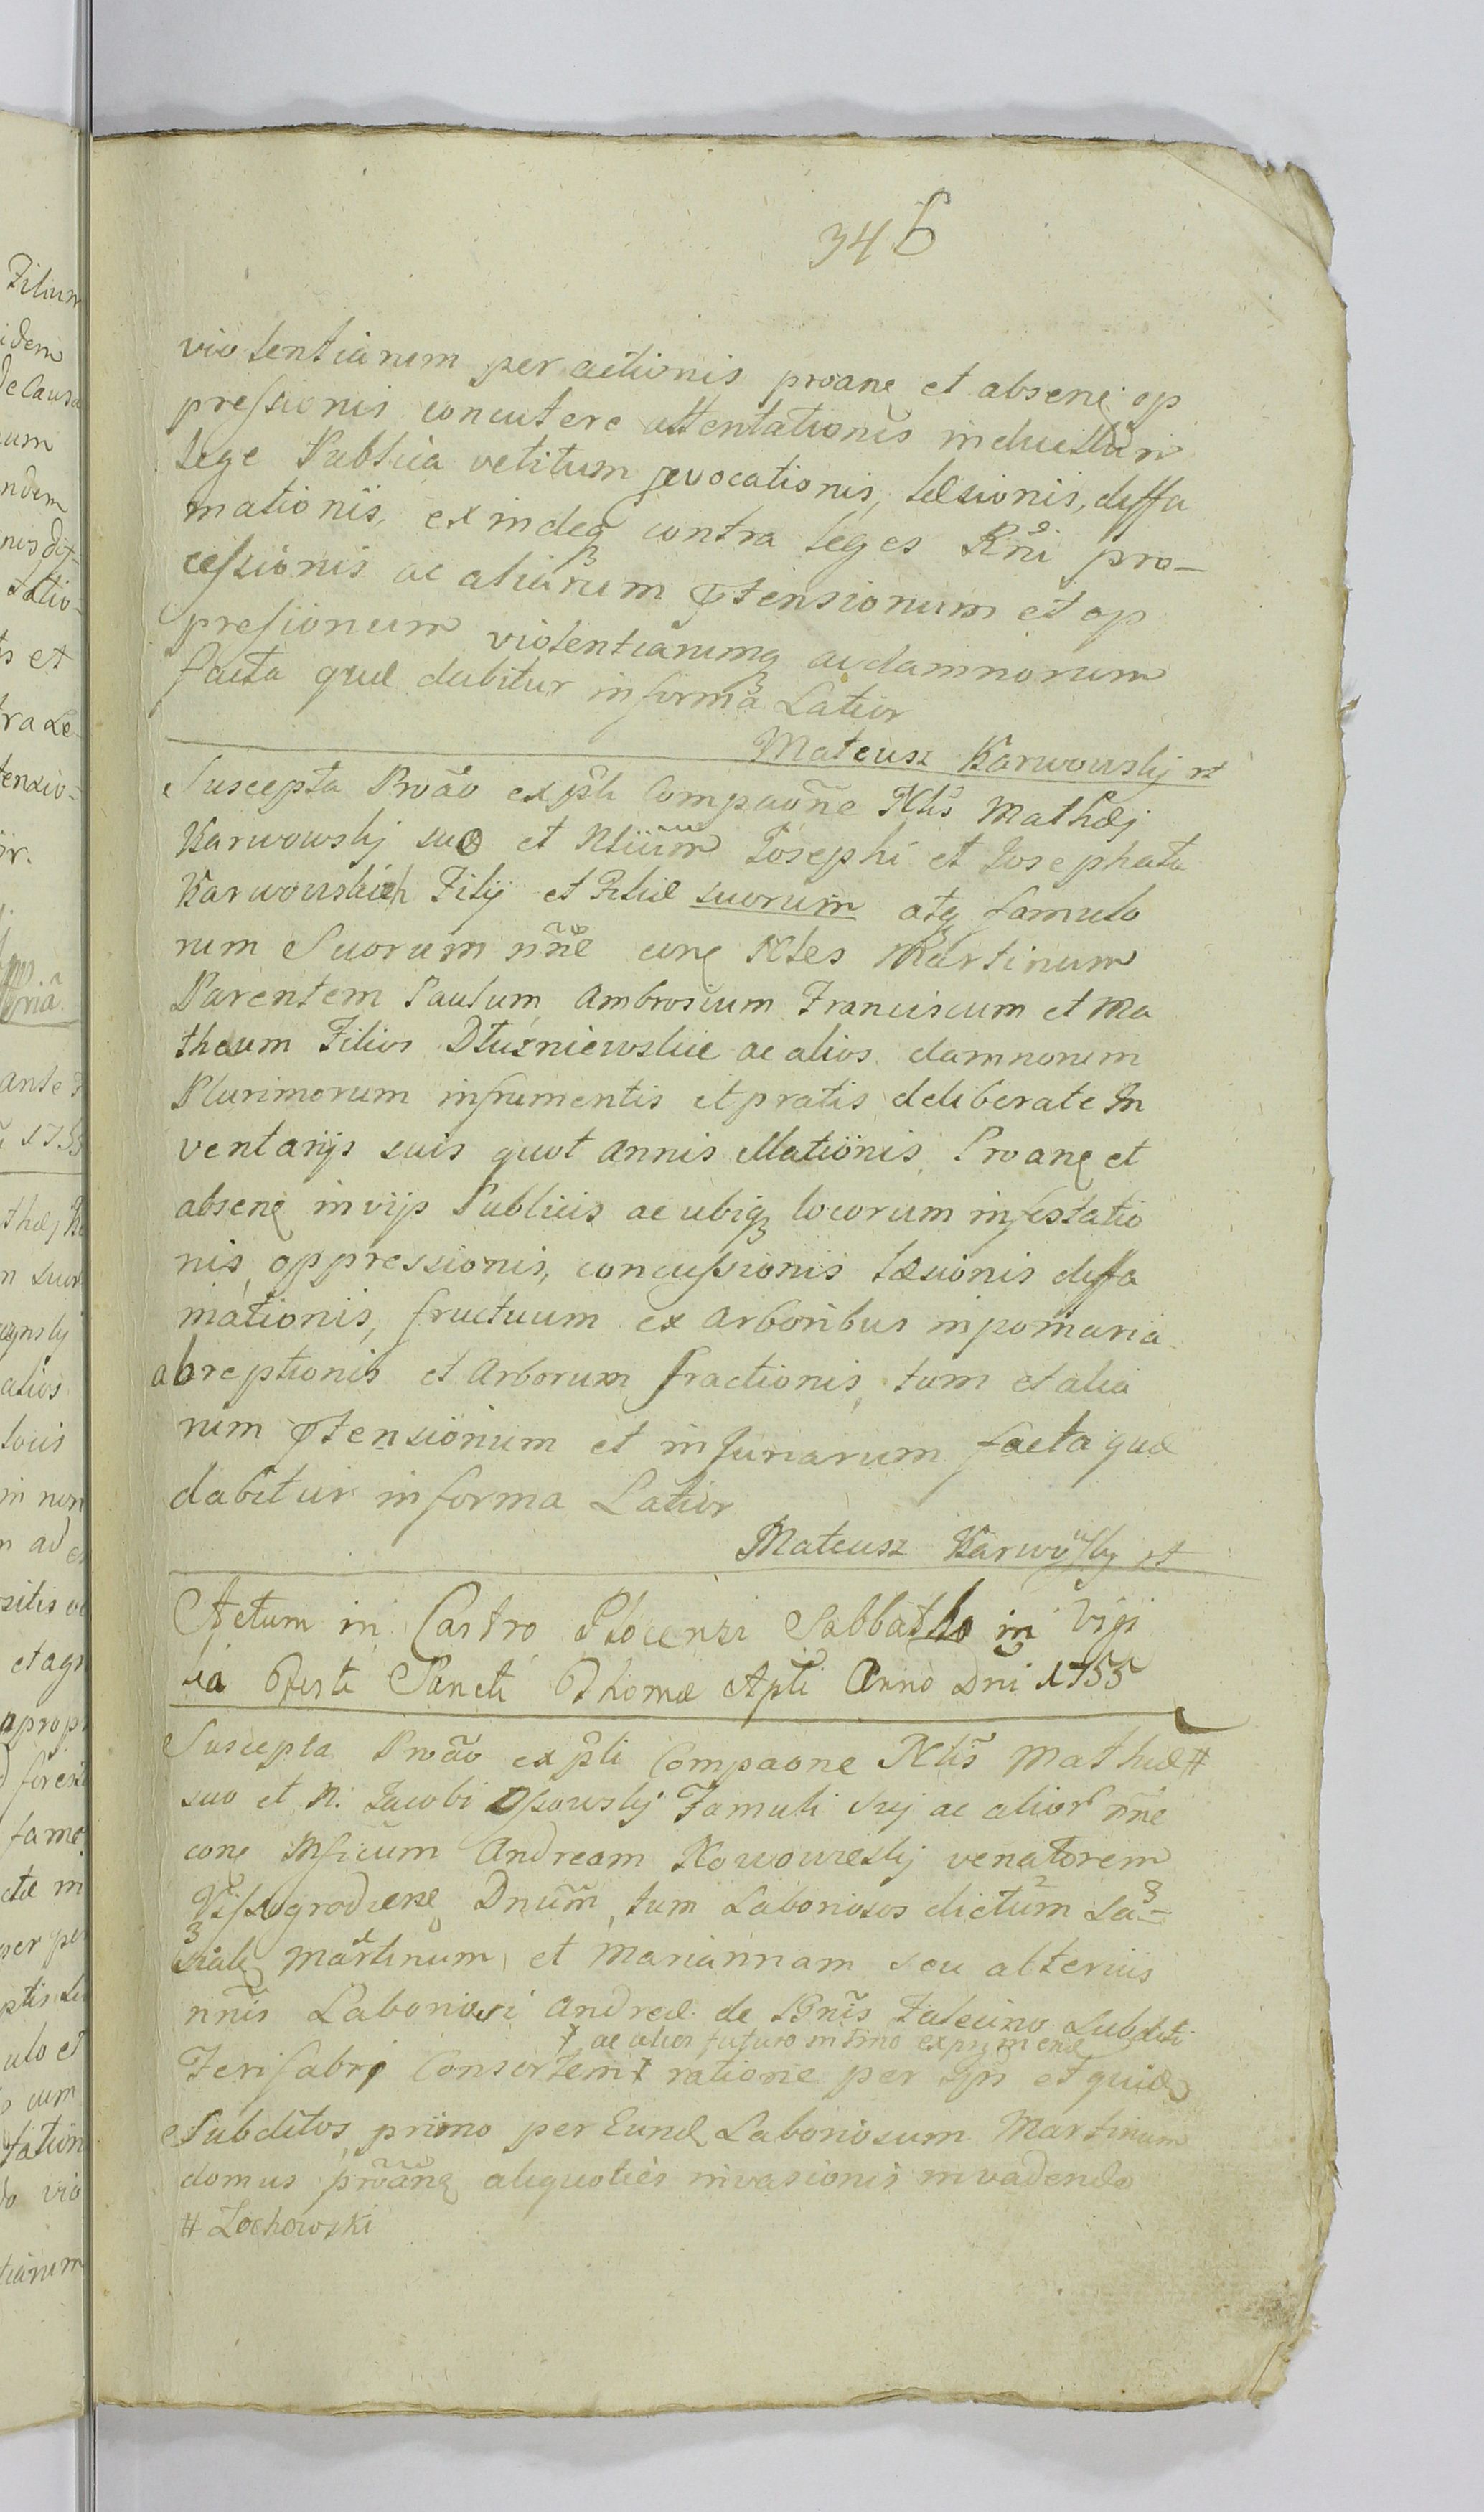 346
violentiarum peractionis proane et absene op
pressionis concutere attentationis in duellum
Lege Publica vetitum evocationis, læsionis, diffa
mationis, exindeq contra leges Rni pro-
cessionis ac aliarum ptensionum et op
presionum violentiarumq ac damnorum
facta quæ dabitur in forma Latior
Mateusz Karwowskj rt
Suscepta Proão ex pti Compaõne Nlis Mathæj
Karwowskj suo et Nlium Josephi et Josephata
Karwowskich Filij et Filiæ suorum atq famulo
rum Suorum nñe cone Nles Martinum
Parentem Paulum Ambrosium Franciscum et Ma
thæum Filios Dłużniewskie ac alios damnorum
Plurimorum in frumentis et pratis deliberate In
ventarijs suis quot Annis illationis, Proane et
absene in vijs Publicis ac ubiq locorum infestatio
nis, oppressionis, concussionis læsionis diffa
mationis, fructuum ex Arboribus in pomaria
abreptionis et Arborum fractionis, tum et alia
rum ptensionum et injuriarum facta quæ
dabitur in forma Latior
Mateusz Karwowskj rt
Actum in Castro Plocensi Sabbatho in Vigi
lia Festi Sancti Thomæ Apli Anno Dni 1755
Suscepta Proão ex pti Compaone Nlis Mathiæ #
suo et N. Jacobi Ossowskj Famuli Suj ac alior nñe
cone Mficum Andream Nowowieskj venatorem
Vissogrodiene Dnum, tum Laboriosos dictum Sa-
Martinum et Mariannam seu alterius
nnis Laboriosi Andreæ de Bonis Fulecino Subditi
† ac alios futuro in Tmno exprimene
Ferifabrj Consortem † ratione per Ips et quide
Subditos primo per Eund Laboriosum Martinum
domus proane aliquoties invasionis invadendo
# Zochowski